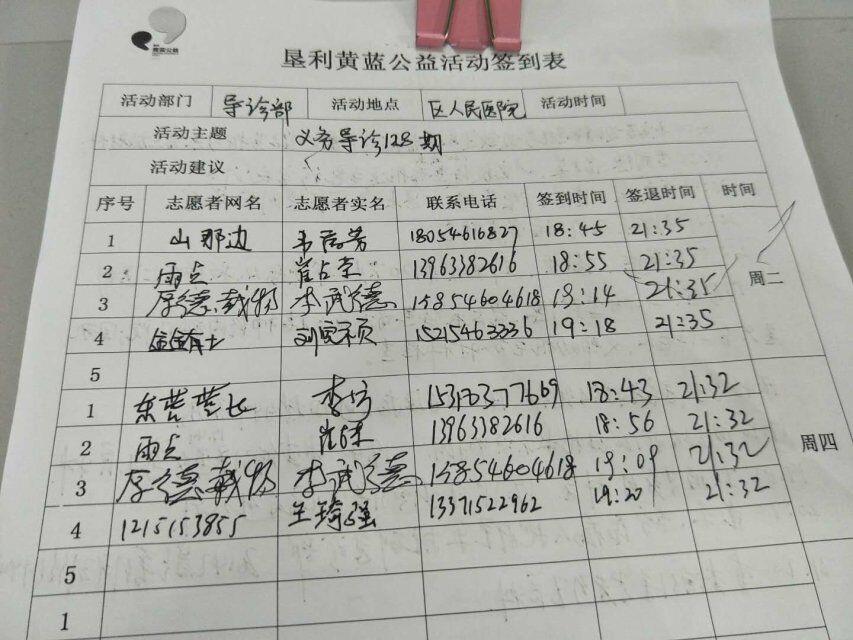 垦利黄蓝公益活动签到表
活动部门 导诊部 活动地点 区人民医院 活动时间
活动主题 义务导诊128期
活动建议
序号 志愿者网名 志愿者实名 联系电话 签到时间 签退时间 时间
1 山那边 18054616827 18:45 21:35
2 雨点 崔占荣 13963382616 18:55 21:35 周二
3 厚德载物 李武德 15854604618 19:14 21:35
4 15215463336 19:18 21:35
5
1 李 15318377669 18:43 21:32
2 雨点 13963382616 18:56 21:32 周四
3 厚德载物 李武德 15854604618 19:09 21:32
4 1215153855 王琦强 13371522962 19:20 21:32
5
1